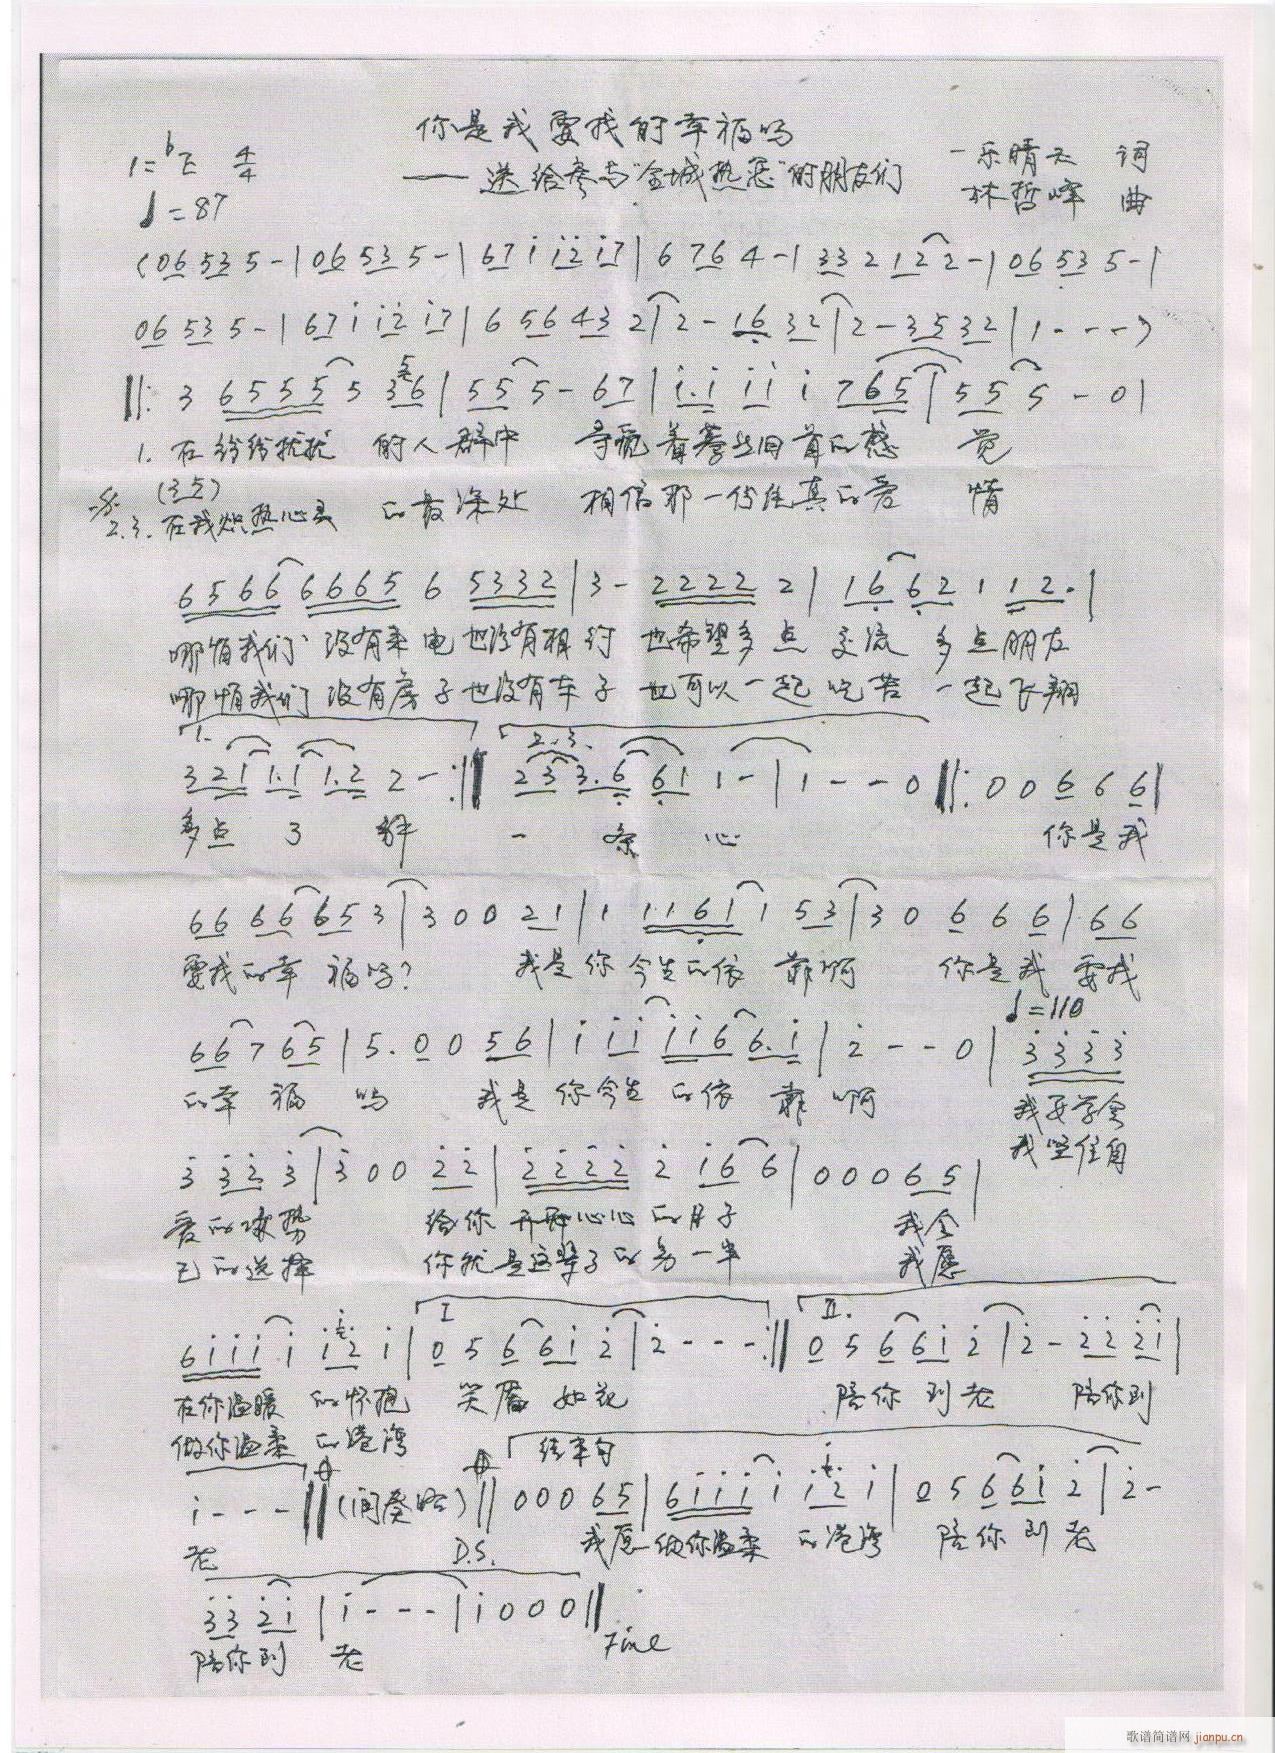 你是我要找的幸福吗
1=♭E 4/4
——送给参与"全城热恋"的朋友们
一乐晴天 词
♩=87
林哲峰 曲
(06 53 5 - | 06 53 5 - | 67 i i2 i7 | 6 76 4 - | 33 2 12 2 - | 06 53 5 - |
06 53 5 - | 67 i i2 i7 | 6 56 43 2 | 2 - 16 32 | 2 - 35 32 | 1 - - - )
||: 3 6555 5 36 | 55 5 - 67 | i.i ii i 765 | 55 5 - 0 |
1. 在纷纷扰扰 的人群中 寻觅着蓦然回首的感 觉
2.3. 在我炽热心灵 的最深处 相信那一份纯真的爱 情
6566 6665 6 5332 | 3 - 2222 2 | 16 62 1 12. |
哪怕我们 没有来电也没有相约 也希望多点 交流 多点朋友
哪怕我们没有房子也没有车子 也可以一起吃苦 一起飞翔
1. 2.3.
321 1.1 1.2 2 - :|| 23 3.6 61 1 - | 1 - - 0 ||: 0 0 6 6 6 |
多点了 解 一 条 心 你是我
66 66 65 3 | 3 0 0 21 | 1 1161 1 53 | 3 0 6 6 6 | 66
要找的幸 福吗? 我是你 今生的依 靠啊 你是我 要找
♩=110
66 7 65 | 5. 0 0 56 | i ii ii6 6.i | 2 - - 0 | 3333
的幸 福 吗 我是 你今生 的依 靠 啊 我要学会
我坚信自
3 32 3 | 3 0 0 22 | 2222 2 i6 6 | 0 0 0 65 |
爱的攻势 给你 开开心心 的日子 我会
己的选择 你就是这辈子的另一半 我愿
I II.
6iii i i2 i | 0 5 6 6i 2 | 2 - - - :|| 0 5 6 6i 2 | 2 - 22 2i |
在你温暖 的怀抱 笑靥 如花 陪你 到老 陪你到
做你温柔 的港湾
结束句
i - - - || (间奏略) || 0 0 0 65 | 6iii i i2 i | 0 5 6 6i 2 | 2 -
老 D.S. 我愿 做你温柔 的港湾 陪你 到 老
33 2i | i - - - | i 0 0 0 ||
陪你到 老 Fine
歌谱简谱网 jianpu.cn